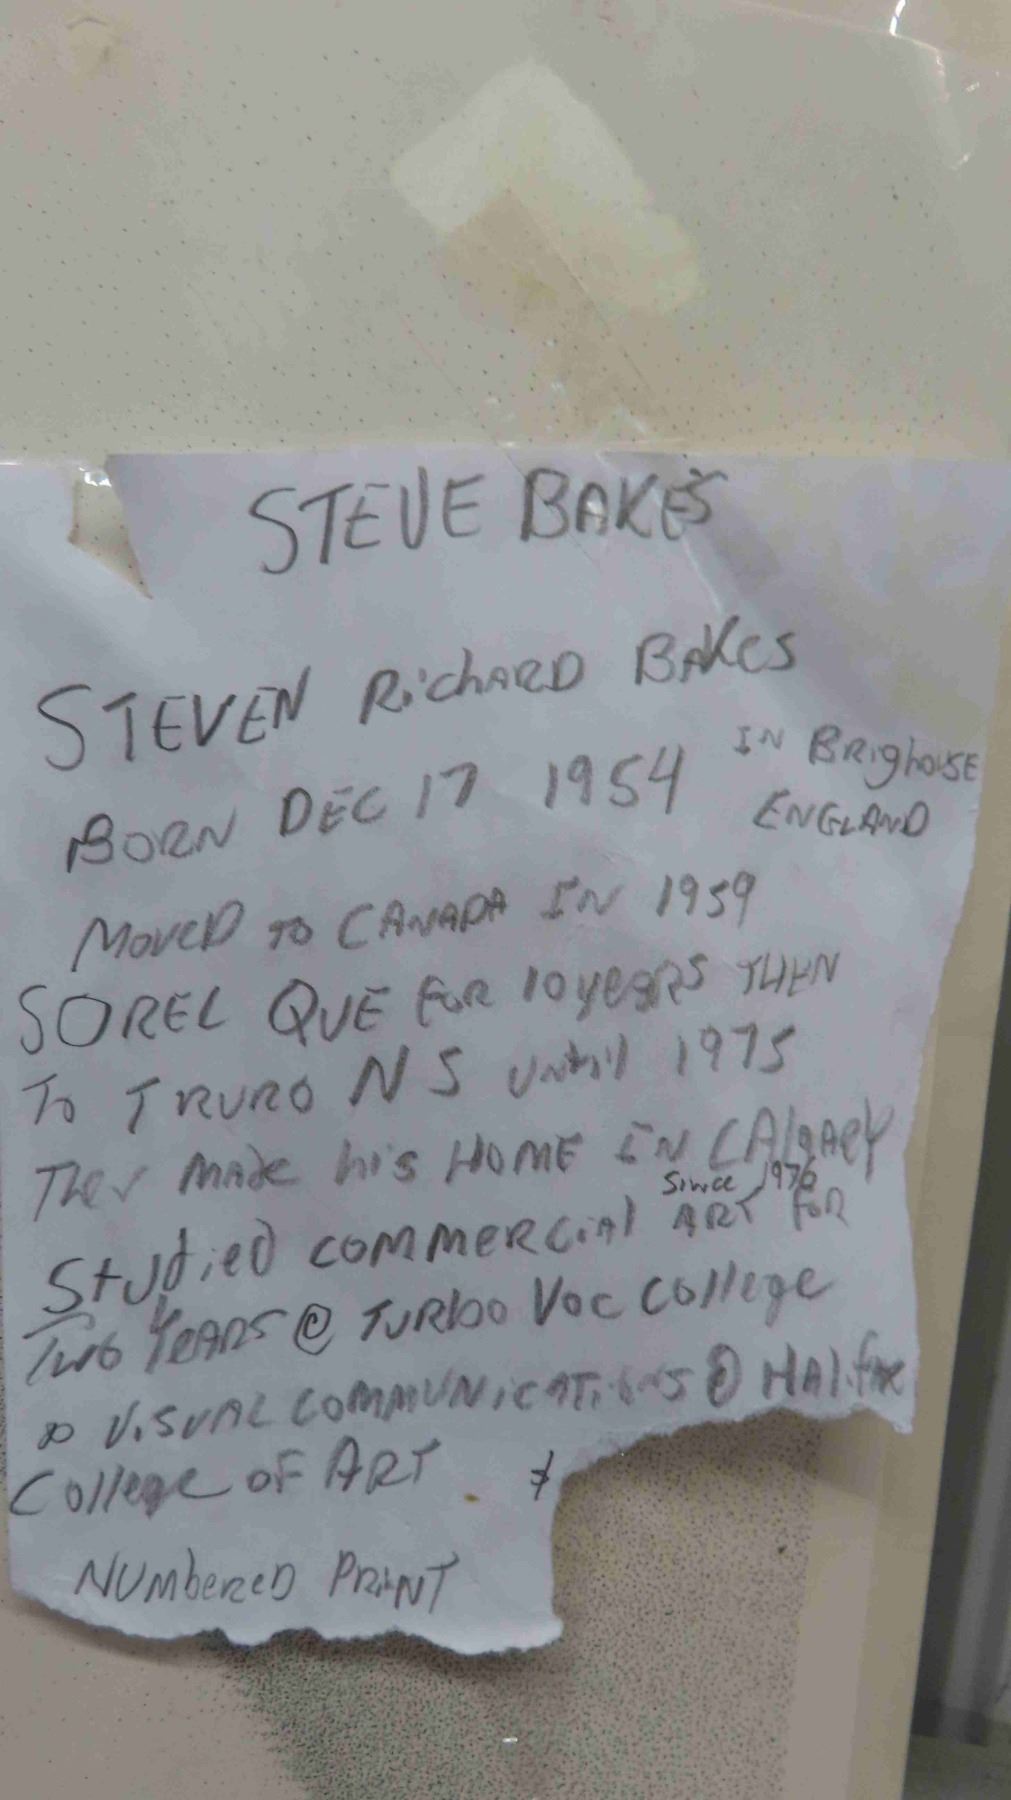 STEVE BAKES
STEVEN RichARD BAKes
BORN DEC 17 1954 IN BRighouSE
ENGLAND
MoveD TO CANADA IN 1959
SOREL QUE FOR 10 yeARS THEN
To TRURO N S until 1975
Then MADe his HOME IN CAlgARY
Since 1976
Studied COMMERCiAl ART FOR
Two YEARS @ TURboo Voc College
VISUAL COMMUNICATIONS @ HAlifax
College OF ART
NUmbereD PRINT